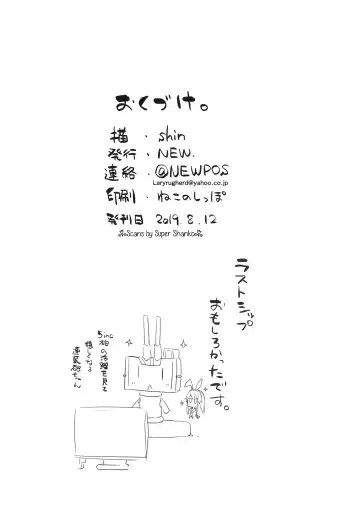 おくづけ。
描・shin
発行・NEW.
連絡・@NEWPOS
Laryrugherd@yahoo.co.jp
印刷・ねこのしっぽ
発刊日 2019.8.12
Scans by Super Shanko
ラストシップ
おもしろかったです。
5inc砲の活躍を見て
嬉しくなる
連装砲ちゃん